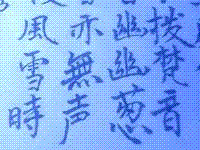 撥梵音
幽幽葱
亦無声
風雪時